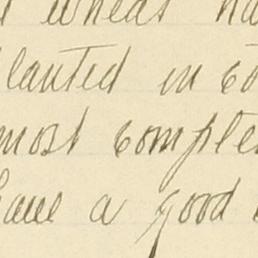 wheat ha
lanted in co
most complete
have a good